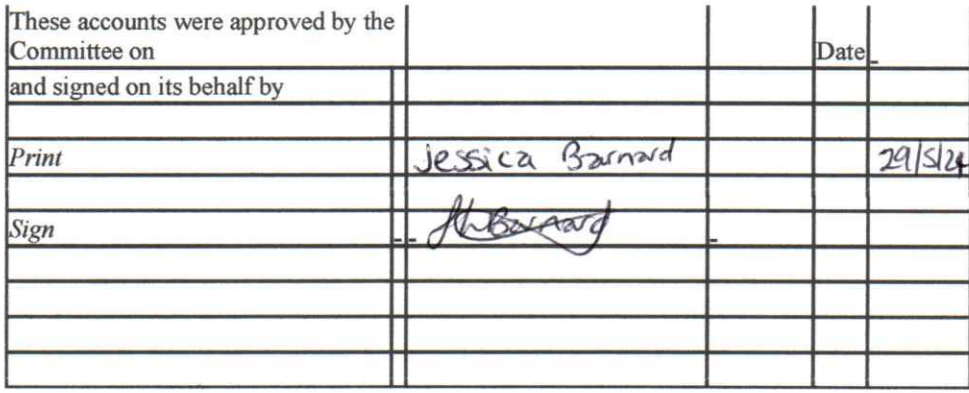 These accounts were approved by the
Committee on
Date
and signed on its behalf by
Print Jessica Barnard 29/5/24
Sign JhBarnard